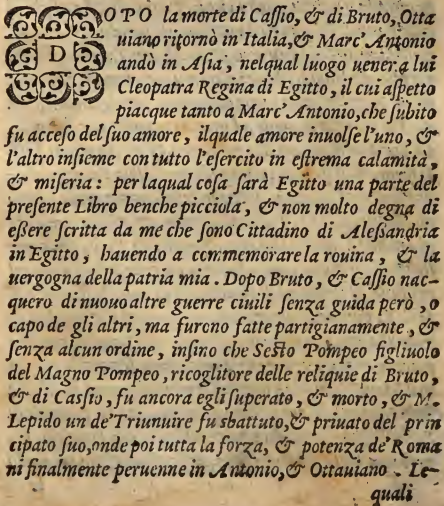 DOPO la morte di Caſſio, & di Bruto, Otta
uiano ritornò in Italia, & Marc' Antonio
andò in Aſia, nelqual luogo uener a lui
Cleopatra Regina di Egitto, il cui aſpetto
piacque tanto a Marc' Antonio, che ſubito
fu acceſo del ſuo amore, ilquale amore inuolſe l'uno, &
l'altro inſieme con tutto l'eſercito in eſtrema calamità,
& miſeria: per laqual coſa ſarà Egitto una parte del
preſente Libro benche picciola, & non molto degna di
eßere ſcritta da me che ſono Cittadino di Aleßandria
in Egitto, hauendo a commemorare la rouina, & la
uergogna della patria mia. Dopo Bruto, & Caſſio nac-
quero di nuouo altre guerre ciuili ſenza guida però, o
capo de gli altri, ma furono fatte partigianamente, &
ſenza alcun ordine, inſino che Seſto Pompeo figliuolo
del Magno Pompeo, ricoglitore delle reliquie di Bruto,
& di Caſſio, fu ancora egli ſuperato, & morto, & M.
Lepido un de' Triunuire fu sbattuto, & priuato del prin
cipato ſuo, onde poi tutta la forza, & potenza de' Roma
ni finalmente peruenne in Antonio, & Ottauiano. Le-
quali